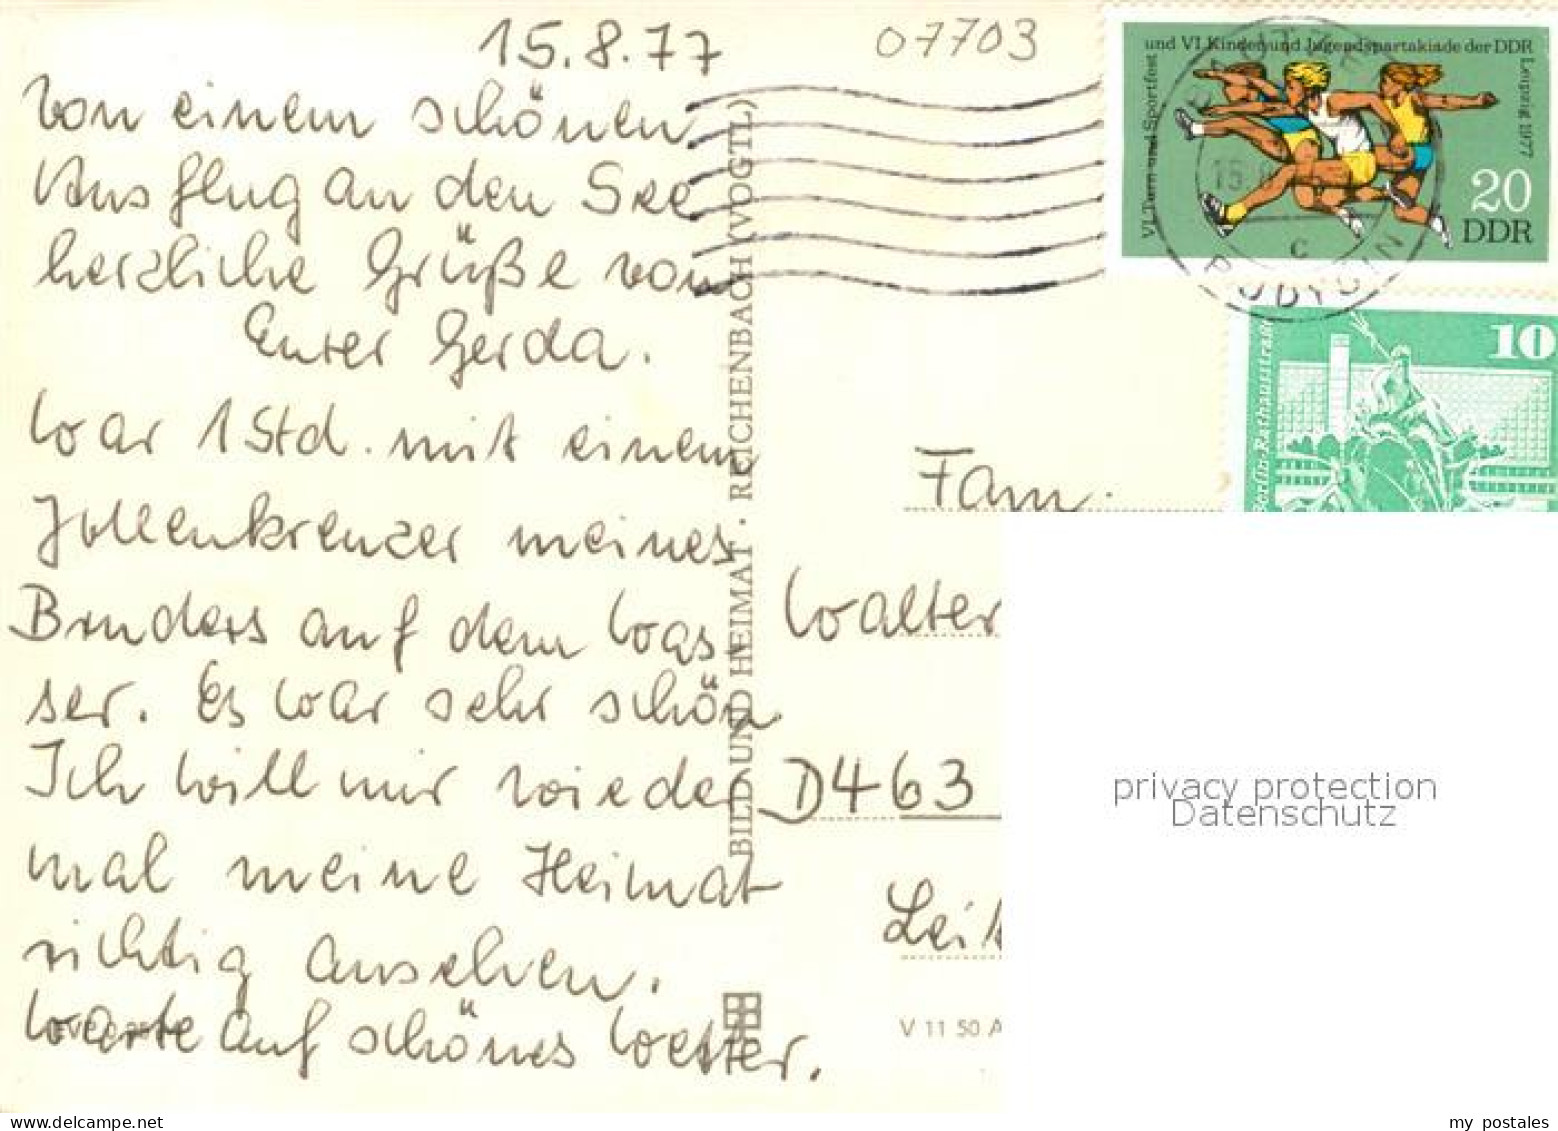 15.8.77
07703
Von einem schönen
Ausflug an den See
herzliche Grüße von
Eurer Gerda.
War 1 Std. mit einem
Jollenkreuzer meines
Bruders auf dem Was-
ser. Es war sehr schön.
Ich will mir wieder
mal meine Heimat
richtig ansehen.
Warte auf schönes Wetter.
BILD UND HEIMAT · REICHENBACH (VOGTL)
VI. Turn- und Sportfest
und VI. Kinder- und Jugendspartakiade der DDR
Leipzig 1977
20
DDR
BAUTZEN
15.
c
BUDYŠIN
10
Berlin-Rathausstraße
Fam.
Walter
D 463
Leit
V 11 50 A
privacy protection
Datenschutz
delcampe.net
my_postales